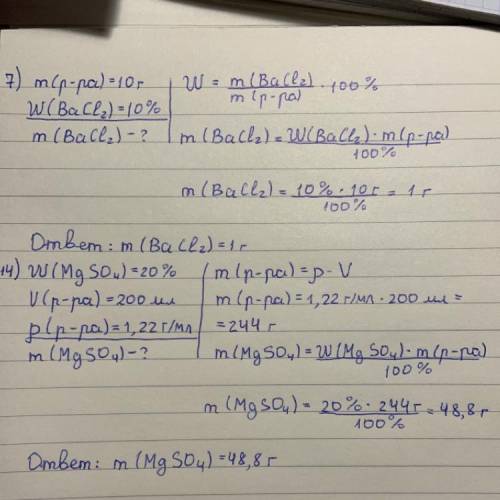 7) m(р-ра)=10г
W(BaCl₂)=10%
m(BaCl₂)-?
W = m(BaCl₂)/m(р-ра) · 100%
m(BaCl₂)= W(BaCl₂)·m(р-ра)/100%
m(BaCl₂)= 10%·10г/100% = 1г
Ответ: m(BaCl₂)=1г
14) W(MgSO₄)=20%
V(р-ра)=200мл
ρ(р-ра)=1,22г/мл
m(MgSO₄)-?
m(р-ра)=ρ·V
m(р-ра)=1,22г/мл·200мл=
=244г
m(MgSO₄)= W(MgSO₄)·m(р-ра)/100%
m(MgSO₄)= 20%·244г/100% =48,8г
Ответ: m(MgSO₄)=48,8г